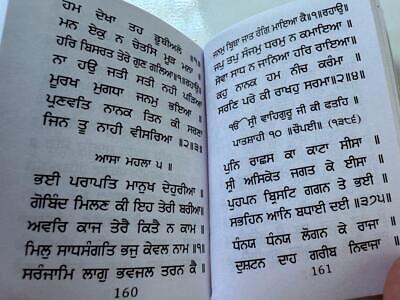 ਹਮ ਦੇਖਾ ਤਹ ਤ੍ਰਿਭਵਣੁ
ਮਨ ਏਕੁ ਨ ਚੇਤਸਿ ਮੂੜ ਮਨਾ ॥
ਹਰਿ ਬਿਸਰਤ ਤੇਰੇ ਗੁਣ ਗਲਿਆ॥੧॥ਰਹਾਉ॥
ਨਾ ਹਉ ਜਤੀ ਸਤੀ ਨਹੀ ਪੜਿਆ
ਮੂਰਖ ਮੁਗਧਾ ਜਨਮੁ ਭਇਆ ॥
ਪ੍ਰਣਵਤਿ ਨਾਨਕ ਤਿਨ ਕੀ ਸਰਣਾ
ਜਿਨ ਤੂ ਨਾਹੀ ਵੀਸਰਿਆ ॥੨॥੩॥
ਆਸਾ ਮਹਲਾ ੫ ॥
ਭਈ ਪਰਾਪਤਿ ਮਾਨੁਖ ਦੇਹੁਰੀਆ ॥
ਗੋਬਿੰਦ ਮਿਲਣ ਕੀ ਇਹ ਤੇਰੀ ਬਰੀਆ॥
ਅਵਰਿ ਕਾਜ ਤੇਰੈ ਕਿਤੈ ਨ ਕਾਮ ॥
ਮਿਲੁ ਸਾਧਸੰਗਤਿ ਭਜੁ ਕੇਵਲ ਨਾਮ ॥੧॥
ਸਰੰਜਾਮਿ ਲਾਗੁ ਭਵਜਲ ਤਰਨ ਕੈ ॥
160
ਜਨਮੁ ਬ੍ਰਿਥਾ ਜਾਤ ਰੰਗਿ ਮਾਇਆ ਕੈ॥੧॥ਰਹਾਉ॥
ਜਪੁ ਤਪੁ ਸੰਜਮੁ ਧਰਮੁ ਨ ਕਮਾਇਆ ॥
ਸੇਵਾ ਸਾਧ ਨ ਜਾਨਿਆ ਹਰਿ ਰਾਇਆ ॥
ਕਹੁ ਨਾਨਕ ਹਮ ਨੀਚ ਕਰੰਮਾ ॥
ਸਰਣਿ ਪਰੇ ਕੀ ਰਾਖਹੁ ਸਰਮਾ॥੨॥੪॥
ੴ ਸ੍ਰੀ ਵਾਹਿਗੁਰੂ ਜੀ ਕੀ ਫਤਹਿ ॥
ਪਾਤਸ਼ਾਹੀ ੧੦ ॥ ਚੌਪਈ॥ (੧੩੮੬)
ਪੁਨਿ ਰਾਛਸ ਕਾ ਕਾਟਾ ਸੀਸਾ ॥
ਸ੍ਰੀ ਅਸਿਕੇਤ ਜਗਤ ਕੇ ਈਸਾ ॥
ਪੁਹਪਨ ਬ੍ਰਿਸਟਿ ਗਗਨ ਤੇ ਭਈ ॥
ਸਭਹਿਨ ਆਨਿ ਬਧਾਈ ਦਈ ॥੩੭੫॥
ਧੰਨਯ ਧੰਨਯ ਲੋਗਨ ਕੇ ਰਾਜਾ ॥
ਦੁਸ਼ਟਨ ਦਾਹ ਗਰੀਬ ਨਿਵਾਜਾ ॥
161